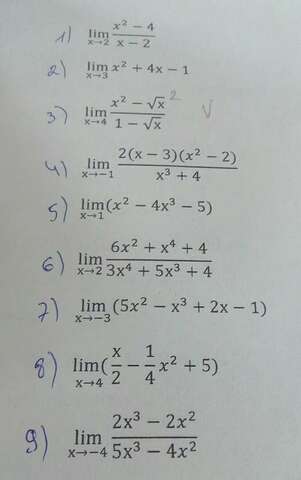 1) lim x→2 (x² − 4)/(x − 2)
2) lim x→3 x² + 4x − 1
3) lim x→4 (x² − √x)/(1 − √x) 2 √
4) lim x→−1 2(x − 3)(x² − 2)/(x³ + 4)
5) lim x→1 (x² − 4x³ − 5)
6) lim x→2 (6x² + x⁴ + 4)/(3x⁴ + 5x³ + 4)
7) lim x→−3 (5x² − x³ + 2x − 1)
8) lim x→4 (x/2 − 1/4 x² + 5)
9) lim x→−4 (2x³ − 2x²)/(5x³ − 4x²)